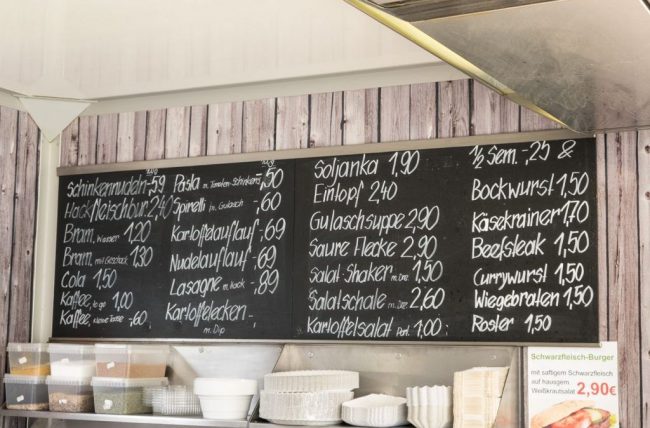 Schinkennudeln -,59
Hackfleischbur. 2,40
Bram. Wasser 1,20
Bram. mit Geschmack 1,30
Cola 1,50
Kaffee, to go 1,00
Kaffee, kleine Tasse -,60
100g
Pasta m. Tomaten-Schinkens. -,50
Spirelli -,60
Kartoffelauflauf -,69
Nudelauflauf -,69
Lasagne m. Hack -,89
Kartoffelecken -,
m. Dip
Soljanka 1,90
Eintopf 2,40
Gulaschsuppe 2,90
Saure Flecke 2,90
Salat Shaker m. Dre. 1,50
Salatschale m. Dre. 2,60
Kartoffelsalat Port. 1,00
½ Sem. -,25 &
Bockwurst 1,50
Käsekrainer 1,70
Beefsteak 1,50
Currywurst 1,50
Wiegebraten 1,50
Roster 1,50
Schwarzfleisch-Burger
mit saftigem Schwarzfleisch
auf hausgem.
Weißkrautsalat 2,90€